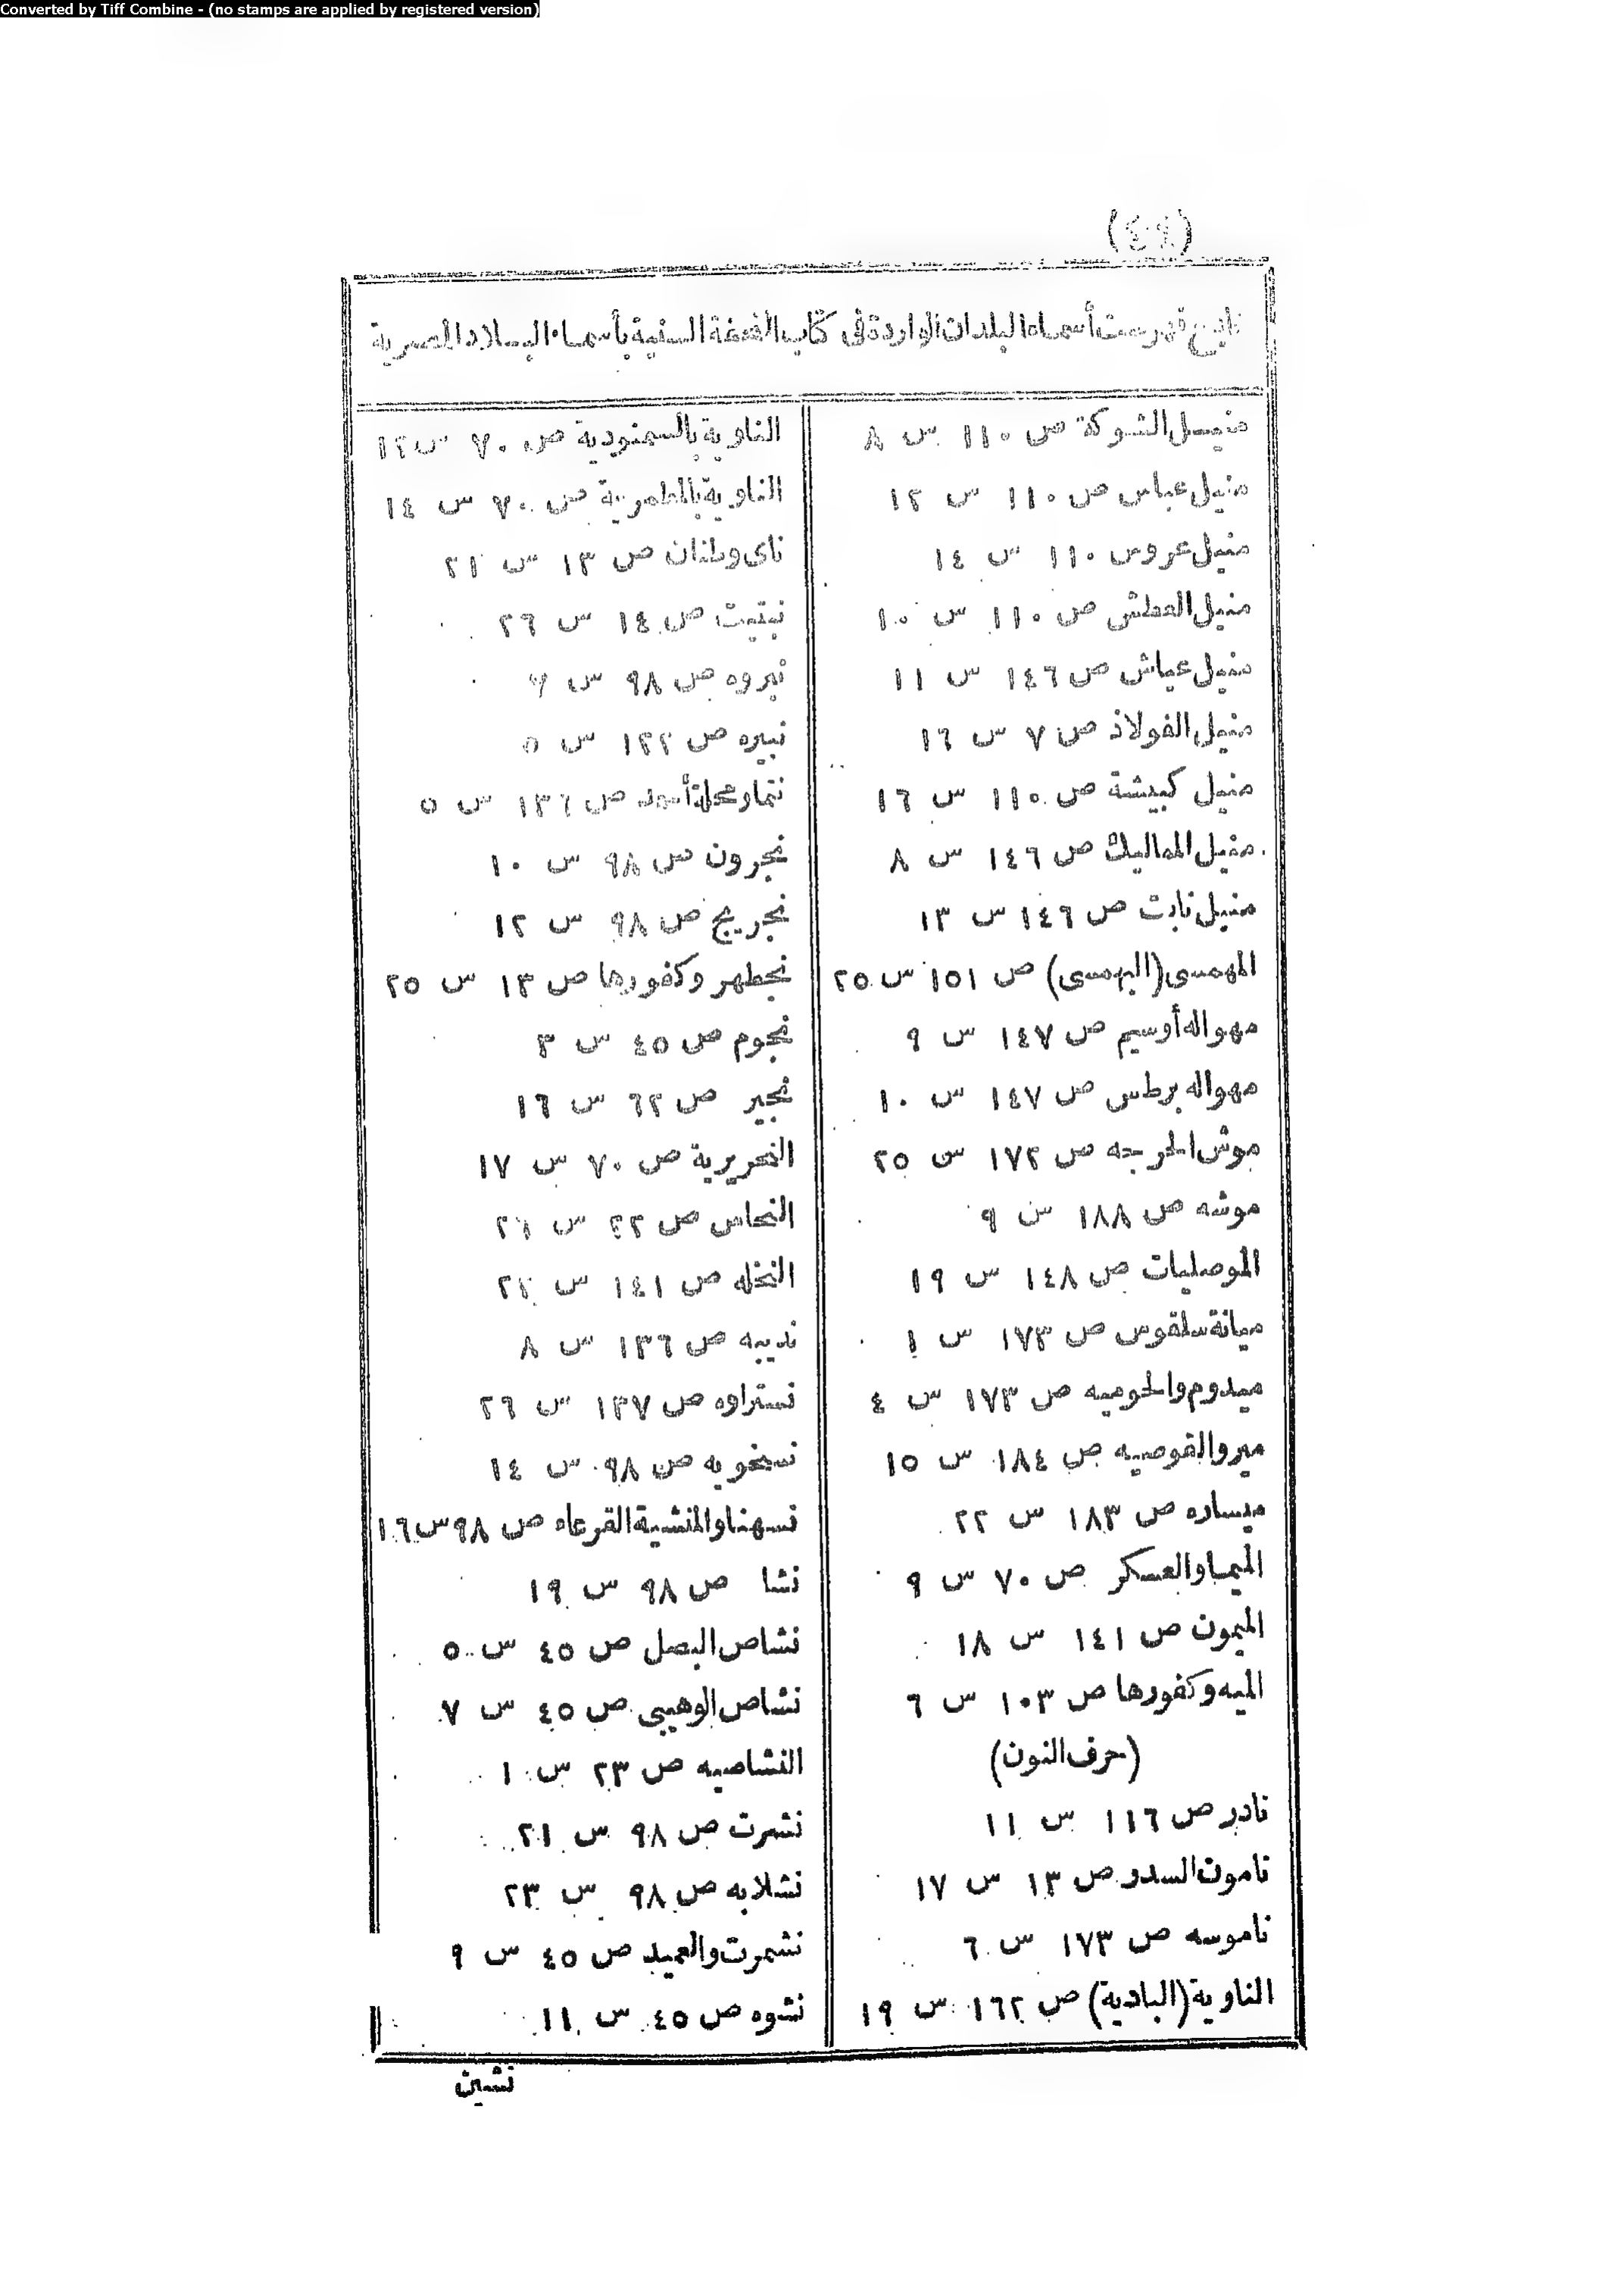 Converted by Tiff Combine - (no stamps are applied by registered version)
تابع فهرست أسماء البلدان الواردة فى كتاب التحفة السنية بأسماء البلاد المصرية
منيل الشوكة ص ١١٠ س ٨
منيل عباس ص ١١٠ س ١٢
منيل عروس ١١٠ س ١٤
منيل العطش ص ١١٠ س ١٠
منيل عياش ص ١٤٦ س ١١
منيل الفولاذ ص ٧ س ١٦
منيل كبيشة ص ١١٠ س ١٦
منيل المماليك ص ١٤٦ س ٨
منيل نابت ص ١٤٦ س ١٣
المهمسى (البهمسى) ص ١٥١ س ٢٥
مهواله أوسيم ص ١٤٧ س ٩
مهواله برطس ص ١٤٧ س ١٠
موش الحرجه ص ١٧٢ س ٢٥
موشه ص ١٨٨ س ٩
الموصليات ص ١٤٨ س ١٩
ميانة سلقوس ص ١٧٣ س ١
ميدوم والحوميه ص ١٧٣ س ٤
مير والقوصيه ص ١٨٤ س ١٥
ميساره ص ١٨٣ س ٢٢
الميما والعسكر ص ٧٠ س ٩
الميمون ص ١٤١ س ١٨
الميه وكفورها ص ١٠٣ س ٦
(حرف النون)
نادر ص ١١٦ س ١١
نامون السدر ص ١٣ س ١٧
ناموسه ص ١٧٣ س ٦
الناوية (البادية) ص ١٦٢ س ١٩
الناوية بالسمنودية ص ٧٠ س ١٢
الناوية بالطمرية ص ٧٠ س ١٤
ناى وطنان ص ١٣ س ٢١
نبتيت ص ١٤ س ٢٦
نبروه ص ٩٨ س
نبيره ص ١٢٢ س ٥
نتما ومحلة أحمد ص ١٣٦ س ٥
نجرون ص ٩٨ س ١٠
نجريج ص ٩٨ س ١٢
نجطهر وكفورها ص ١٣ س ٢٥
نجوم ص ٤٥ س ٣
نجير ص ٦٢ س ١٦
النحريرية ص ٧٠ س ١٧
النحاس ص ٢٢ س ٢٦
النخله ص ١٤١ س ٢٢
نديبه ص ١٣٦ س ٨
نستراوه ص ١٣٧ س ٢٦
نسخويه ص ٩٨ س ١٤
نسهنا والمنشية القرعاء ص ٩٨ س ١٦
نشا ص ٩٨ س ١٩
نشاص البصل ص ٤٥ س ٥
نشاص الوهيبى ص ٤٥ س ٧
النشاصيه ص ٢٣ س ١
نشرت ص ٩٨ س ٢١
نشلابه ص ٩٨ س ٢٣
نشمرت والعميد ص ٤٥ س ٩
نشوه ص ٤٥ س ١١
نشين